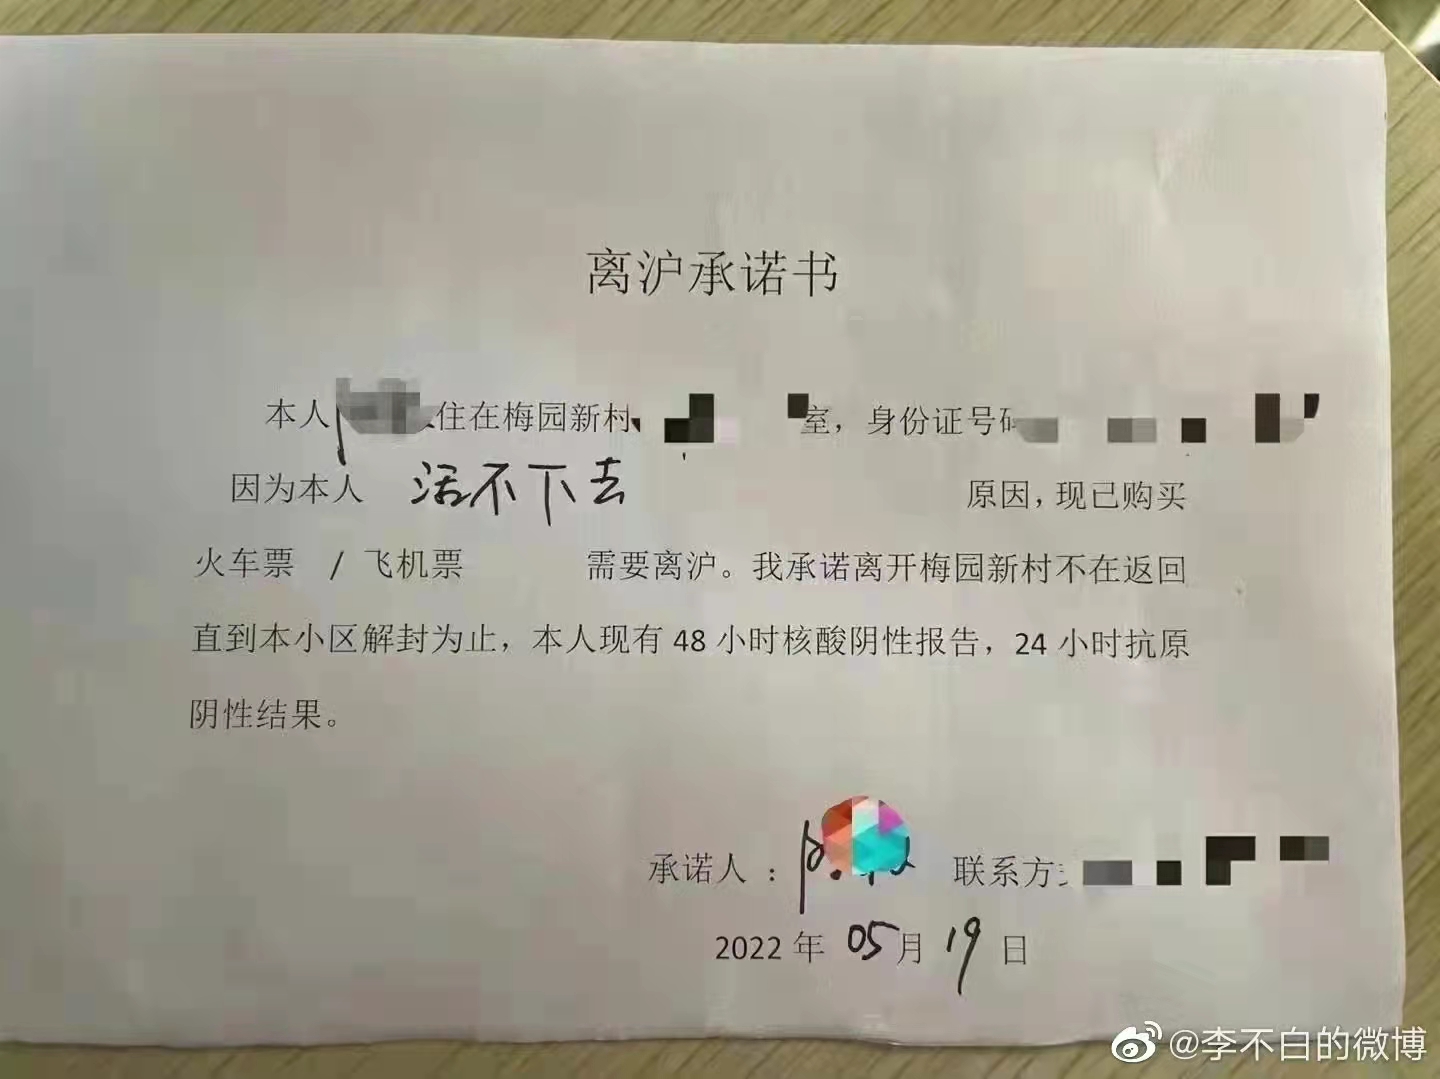 离沪承诺书
本人 住在梅园新村 室，身份证号码
因为本人 活不下去 原因，现已购买
火车票 / 飞机票 需要离沪。我承诺离开梅园新村不在返回
直到本小区解封为止，本人现有 48 小时核酸阴性报告，24 小时抗原
阴性结果。
承诺人： 联系方
2022 年 05 月 19 日
@李不白的微博